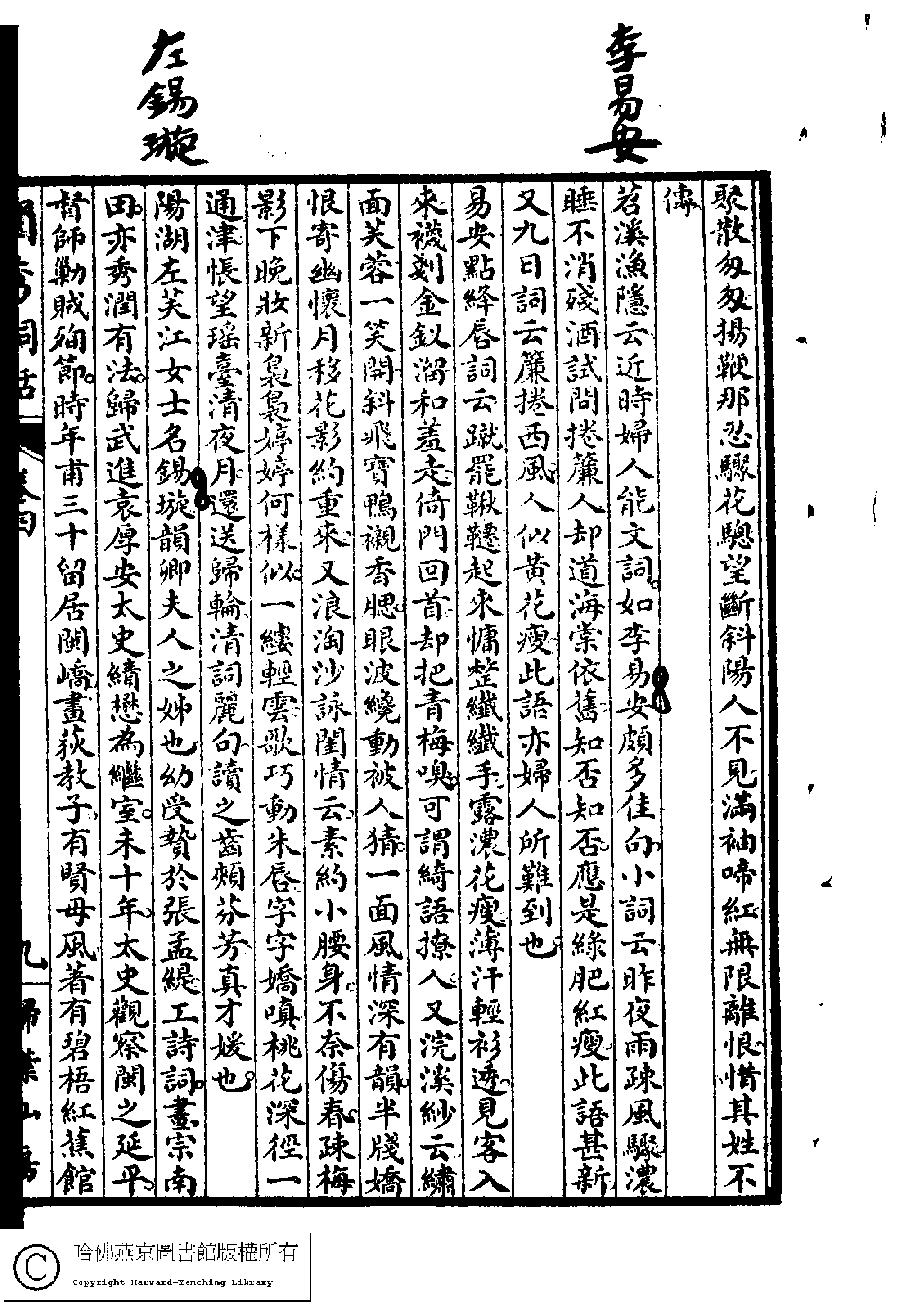 李易安
左錫璇
聚散匆匆揚鞭那忍驟花驄望斷斜陽人不見滿袖啼紅無限離恨惜其姓不
傳
苕溪漁隱云近時婦人能文詞如李易安頗多佳句小詞云昨夜雨疎風驟濃
睡不消殘酒試問捲簾人却道海棠依舊知否知否應是綠肥紅瘦此語甚新
又九日詞云簾捲西風人似黃花瘦此語亦婦人所難到也
易安點絳唇詞云蹴罷鞦韆起來慵整纖纖手露濃花瘦薄汗輕衫透見客入
來襪剗金釵溜和羞走倚門回首却把青梅嗅可謂綺語撩人又浣溪紗云繡
面芙蓉一笑開斜飛寶鴨襯香腮眼波纔動被人猜一面風情深有韻半牋嬌
恨寄幽懷月移花影約重來又浪淘沙詠閨情云素約小腰身不奈傷春疎梅
影下晚妝新裊裊婷婷何樣似一縷輕雲歌巧動朱唇字字嬌嗔桃花深徑一
通津悵望瑶臺清夜月還送歸輪清詞麗句讀之齒頰芬芳真才媛也
陽湖左芙江女士名錫璇韻卿夫人之姊也幼受贄於張孟緹工詩詞畫宗南
田亦秀潤有法歸武進袁厚安太史績懋為繼室未十年太史觀察閩之延平
督師勦賊殉節時年甫三十留居閩嶠畫荻教子有賢母風著有碧梧紅蕉館
閨秀詞話
卷四
九
掃葉山房
哈佛燕京圖書館版權所有
Copyright Harvard-Yenching Library